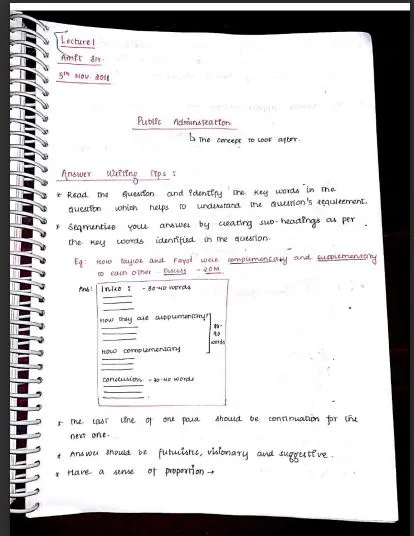 Lecture 1
Amit Sir.
5th Nov. 2018
Public Administration
↳ The concept to look after.
Answer Writing Tips :
* Read the question and identify the key words in the
question which helps to understand the question's requirement.
* Segmentise your answer by creating sub-headings as per
the key words identified in the question.
Eg: How Taylor and Fayol were complementary and supplementary
to each other. Discuss - 20M
Ans: Intro : - 30-40 words
How they are supplementary?
80-
90
words
How complementary
Conclusion - 30-40 words
* The last line of one para should be continuation for the
next one.
* Answer should be futuristic, visionary and suggestive.
* Have a sense of proportion →